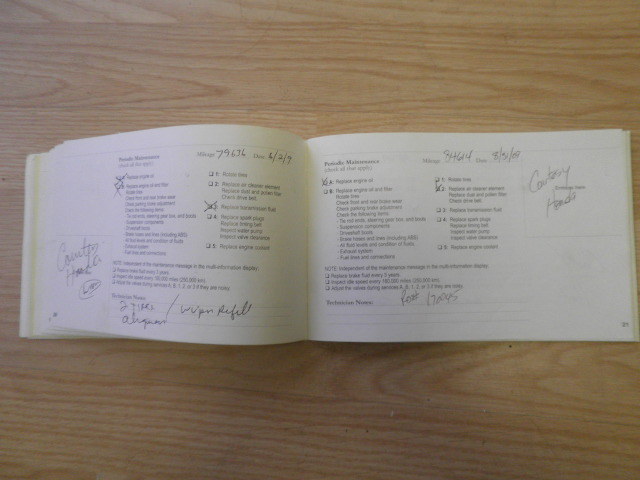 Periodic Maintenance
(check all that apply)
Mileage 79676 Date
A: Replace engine oil
B: Replace engine oil and filter
Rotate tires
Check front and rear brake wear
Check parking brake adjustment
Check the following items:
- Tie rod ends, steering gear box, and boots
- Suspension components
- Driveshaft boots
- Brake hoses and lines (including ABS)
- All fluid levels and condition of fluids
- Exhaust system
- Fuel lines and connections
1: Rotate tires
2: Replace air cleaner element
Replace dust and pollen filter
Check drive belt
3: Replace transmission fluid
4: Replace spark plugs
Replace timing belt
Inspect water pump
Inspect valve clearance
5: Replace engine coolant
NOTE: Independent of the maintenance message in the multi-information display:
Replace brake fluid every 3 years.
Inspect idle speed every 160,000 miles (256,000 km).
Adjust the valves during services A, B, 1, 2, or 3 if they are noisy.
Technician Notes:
2 tires /
Periodic Maintenance
(check all that apply)
Mileage 84614 Date
A: Replace engine oil
B: Replace engine oil and filter
Rotate tires
Check front and rear brake wear
Check parking brake adjustment
Check the following items:
- Tie rod ends, steering gear box, and boots
- Suspension components
- Driveshaft boots
- Brake hoses and lines (including ABS)
- All fluid levels and condition of fluids
- Exhaust system
- Fuel lines and connections
1: Rotate tires
2: Replace air cleaner element
Replace dust and pollen filter
Check drive belt
3: Replace transmission fluid
4: Replace spark plugs
Replace timing belt
Inspect water pump
Inspect valve clearance
5: Replace engine coolant
Honda
NOTE: Independent of the maintenance message in the multi-information display:
Replace brake fluid every 3 years.
Inspect idle speed every 160,000 miles (256,000 km).
Adjust the valves during services A, B, 1, 2, or 3 if they are noisy.
Technician Notes:
21